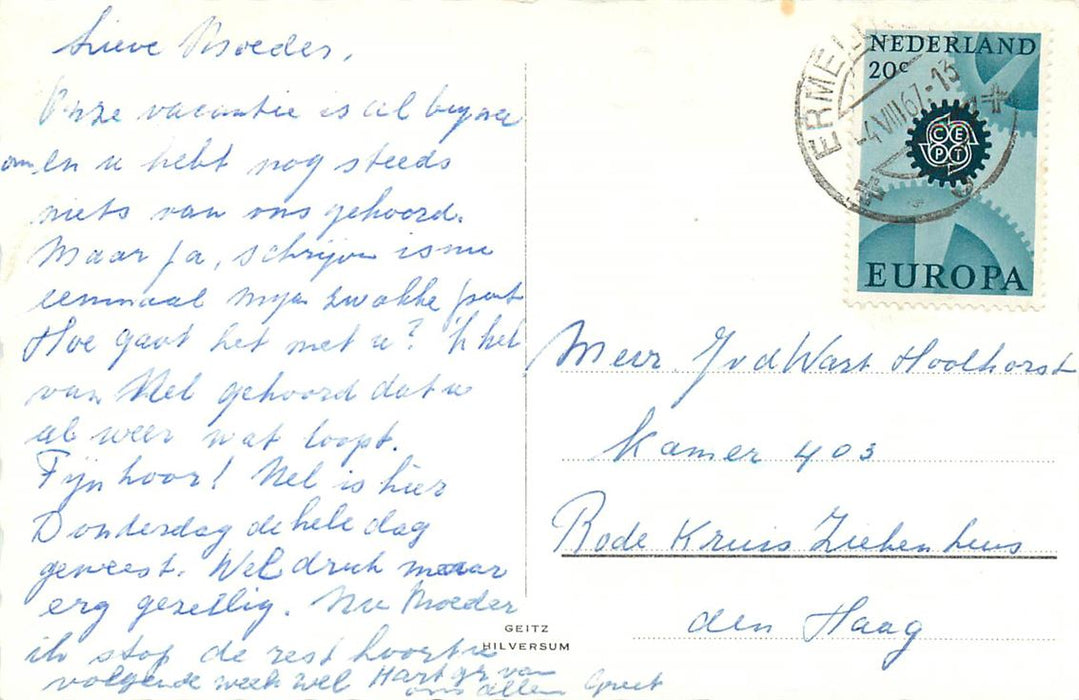 Lieve Moeder,
Onze vacantie is al bijna
om en u hebt nog steeds
niets van ons gehoord.
Maar ja, schrijven is nu
eenmaal mijn zwakke punt
Hoe gaat het met u? 'k heb
van Nel gehoord dat u
al weer wat loopt.
Fijn hoor! Nel is hier
Donderdag de hele dag
geweest. Wel druk maar
erg gezellig. Nu Moeder
ik stop de rest hoort u
volgende week wel Hart. gr. van
ons allen Greet
GEITZ
HILVERSUM
ERMELO
-4 VIII 67-13
NEDERLAND
20c
CEPT
EUROPA
Mevr. J v d Wart Hoolhorst
Kamer 403
Rode Kruis Ziekenhuis
den Haag